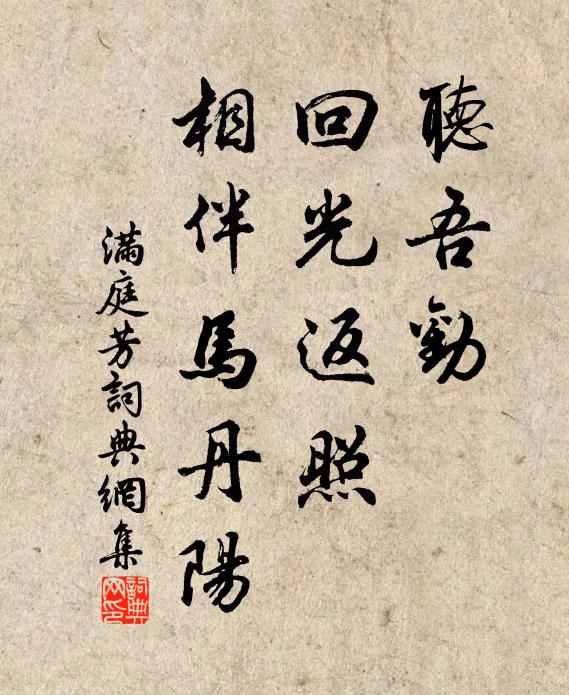 聽吾勸
回光返照
相伴馬丹陽
滿庭芳詞典網集
詞典網印